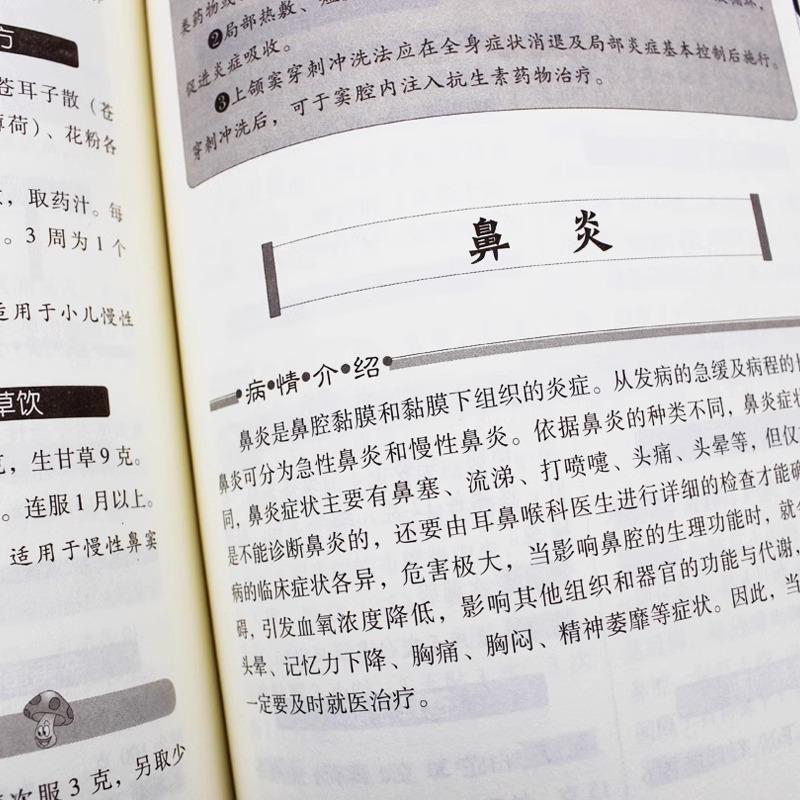 方
苍耳子散（苍
薄荷）、花粉各
，取药汁。每
。3 周为 1 个
适用于小儿慢性
草饮
，生甘草 9 克。
。连服 1 月以上。
适用于慢性鼻窦
次服 3 克，另取少
类药物或
❷局部热敷、
促进炎症吸收。
❸上颌窦穿刺冲洗法应在全身症状消退及局部炎症基本控制后施行。
穿刺冲洗后，可于窦腔内注入抗生素药物治疗。
鼻 炎
病·情·介·绍
鼻炎是鼻腔黏膜和黏膜下组织的炎症。从发病的急缓及病程的
鼻炎可分为急性鼻炎和慢性鼻炎。依据鼻炎的种类不同，鼻炎症状
同，鼻炎症状主要有鼻塞、流涕、打喷嚏、头痛、头晕等，但仅
是不能诊断鼻炎的，还要由耳鼻喉科医生进行详细的检查才能确
病的临床症状各异，危害极大，当影响鼻腔的生理功能时，就
碍，引发血氧浓度降低，影响其他组织和器官的功能与代谢，
头晕、记忆力下降、胸痛、胸闷、精神萎靡等症状。因此，当
一定要及时就医治疗。